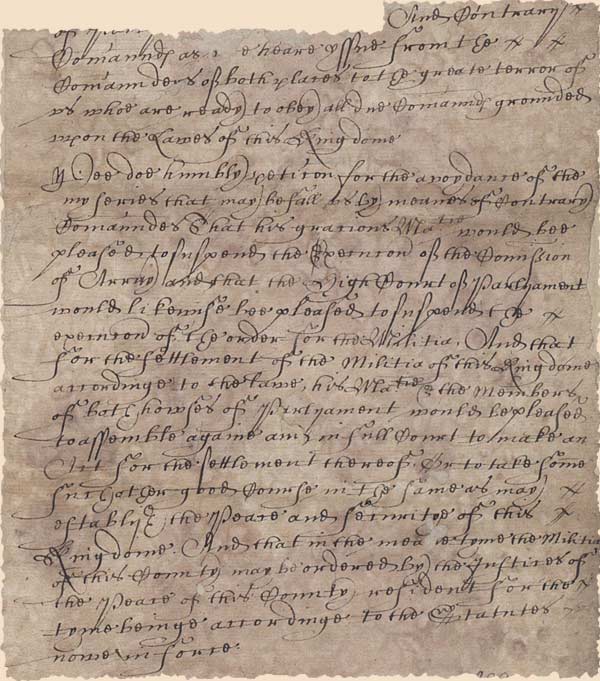 And Contrary
Comaundes as we heare yssue from the
Comaunders of both places to the greate terror of
us whoe are ready to obey all due Comaundes grounded
upon the Lawes of this Kingdome
Wee doe humbly peticon for the avoydance of the
myseries that may befall us by meanes of Contrary
Comaundes That his gracious Matie would bee
pleased to suspend the Execucon of the Comission
of Array and that the High Court of Parlyament
would likewise bee pleased to suspend the
execucon of the order for the Militia, And that
for the settlement of the Militia of this Kingdome
accordinge to the lawe, his Matie & the Members
of both howses of Parlyament would be pleased
to assemble againe and in full Court to make an
Act for the settlement thereof, Or to take some
such other good Course in the same as may
establish the Peace and securitye of this
Kingdome. And that in the meane tyme the Militia
of this County may be ordered by the Justices of
the Peace of this County resident for the
tyme beinge accordinge to the Statutes
nowe in force.